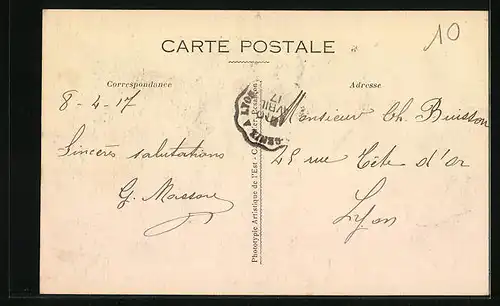 10
CARTE POSTALE
Correspondance
Adresse
8-4-17
Sincères salutations
G. Massard
Monsieur Ch. Buisson
25 rue Tête d'or
Lyon
A LYON
AVRIL
17
Phototypie Artistique de l'Est